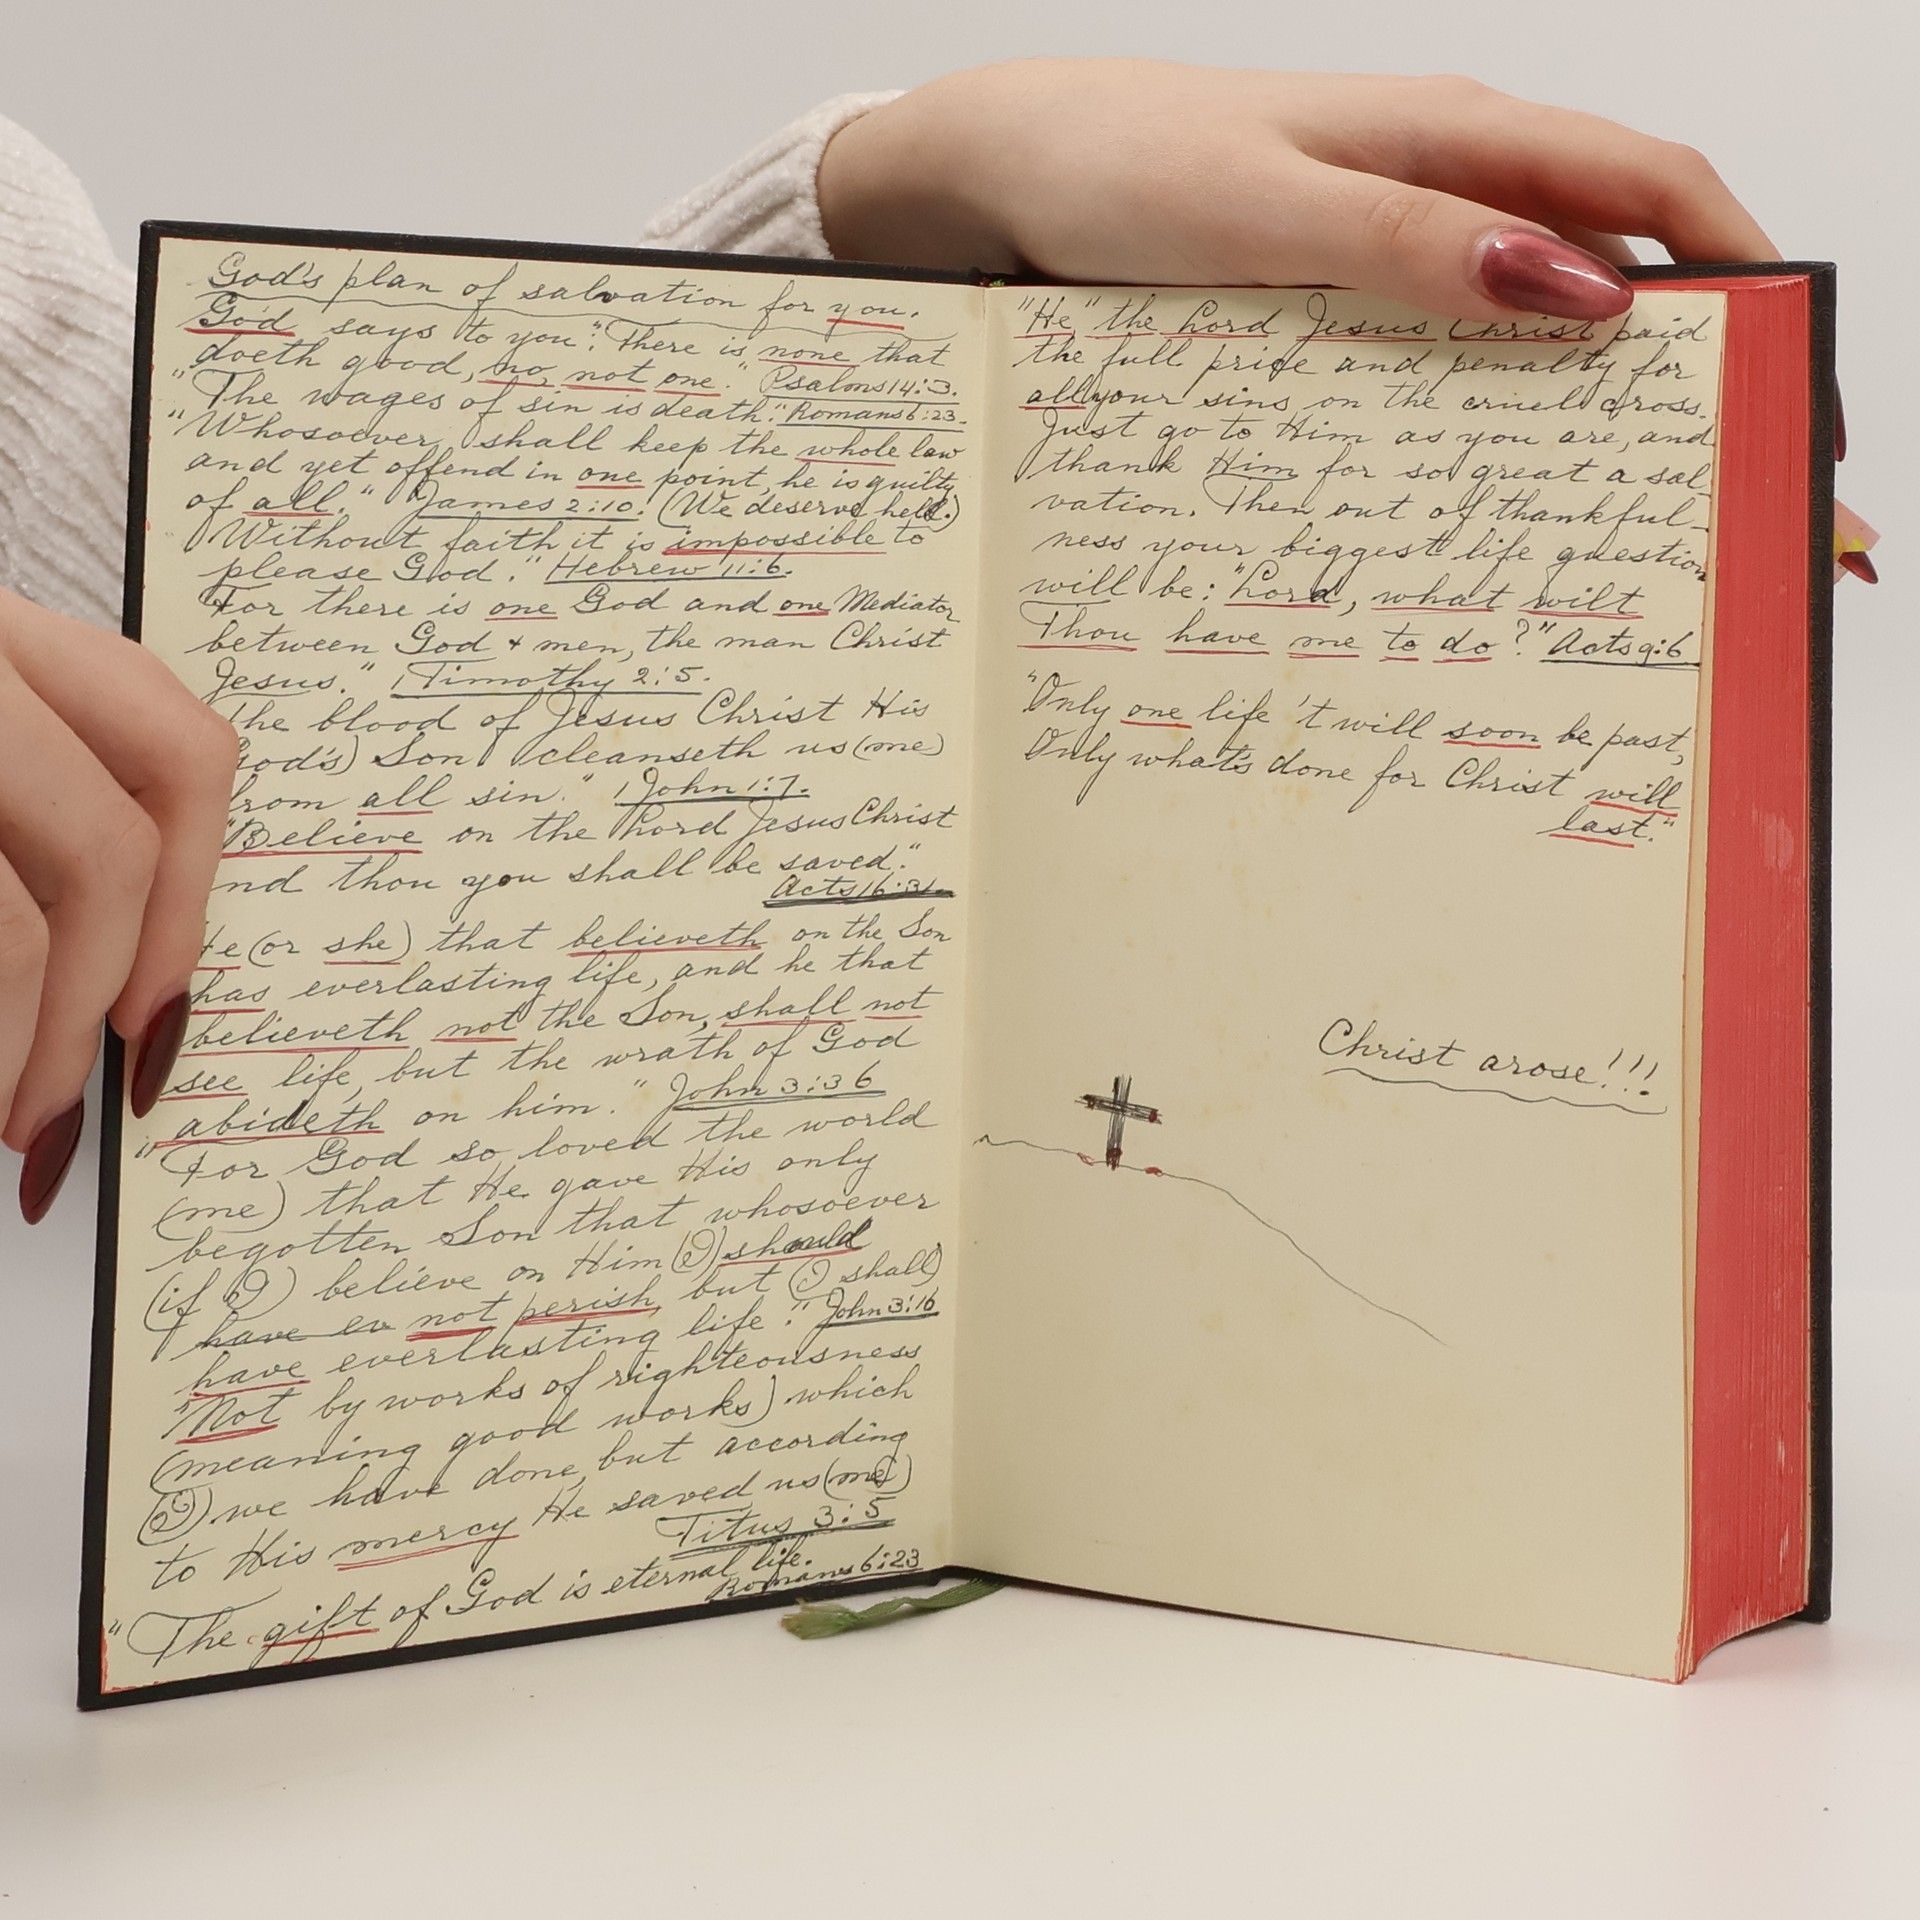 God's plan of salvation for you.
God says to you: "There is none that
doeth good, no, not one." Psalms 14:3.
"The wages of sin is death." Romans 6:23.
"Whosoever shall keep the whole law
and yet offend in one point, he is guilty
of all." James 2:10. (We deserve hell.)
Without faith it is impossible to
please God." Hebrew 11:6.
For there is one God and one Mediator
between God + men, the man Christ
Jesus." 1 Timothy 2:5.
The blood of Jesus Christ His
God's) Son cleanseth us (me)
from all sin." 1 John 1:7.
"Believe on the Lord Jesus Christ
and thou you shall be saved."
Acts 16:31.
He (or she) that believeth on the Son
has everlasting life, and he that
believeth not the Son, shall not
see life, but the wrath of God
abideth on him." John 3:36
"For God so loved the world
(me) that He gave His only
begotten Son that whosoever
(if I) believe on Him (I) should
have ev not perish, but (I shall)
have everlasting life." John 3:16
"Not by works of righteousness
(meaning good works) which
(I) we have done, but according
to His mercy He saved us (me)
Titus 3:5
"The gift of God is eternal life.
Romans 6:23
"He" the Lord Jesus Christ paid
the full price and penalty for
all your sins on the cruel cross.
Just go to Him as you are, and
thank Him for so great a sal-
vation. Then out of thankful-
ness your biggest life question
will be: "Lord, what wilt
Thou have me to do?" Acts 9:6
"Only one life 't will soon be past,
Only what's done for Christ will
last."
Christ arose!!!